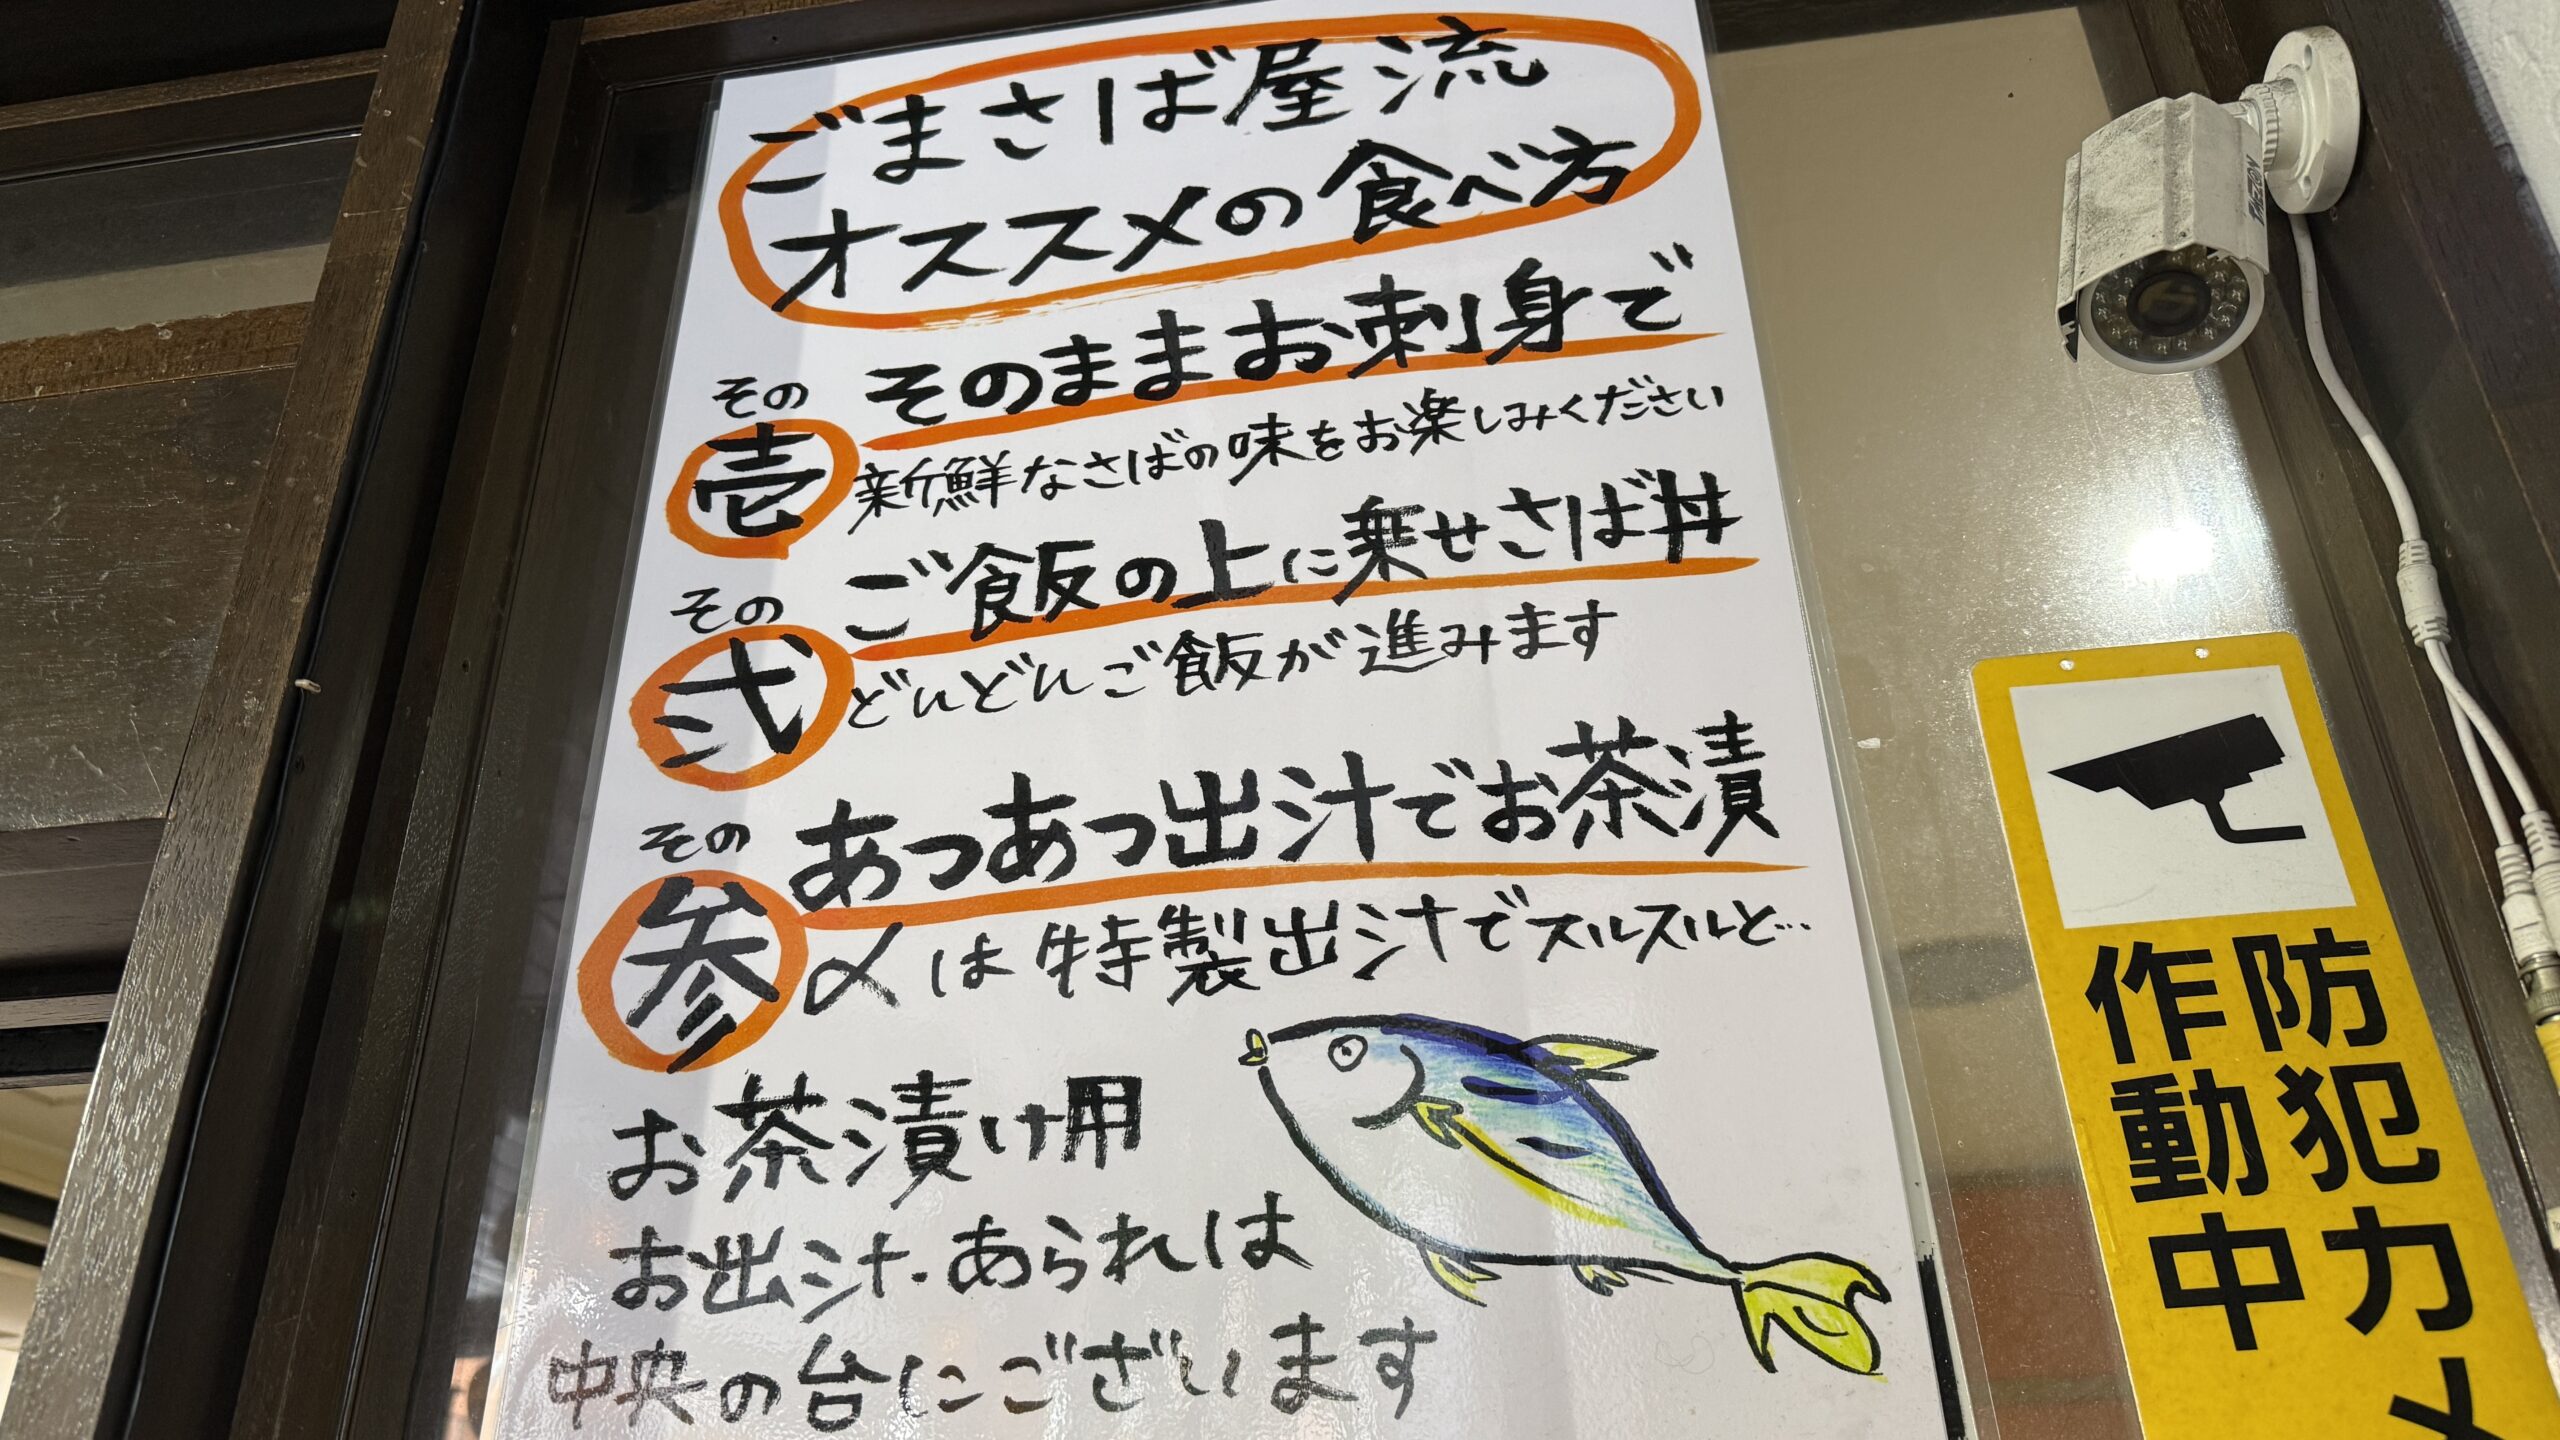 ごまさば屋流
オススメの食べ方
その
壱
そのままお刺身で
新鮮なさばの味をお楽しみください
その
弐
ご飯の上に乗せさば丼
どんどんご飯が進みます
その
参
あつあつ出汁でお茶漬
〆は特製出汁でスルスルと…
お茶漬け用
お出汁・あられは
中央の台にございます
防犯カメ
作動中